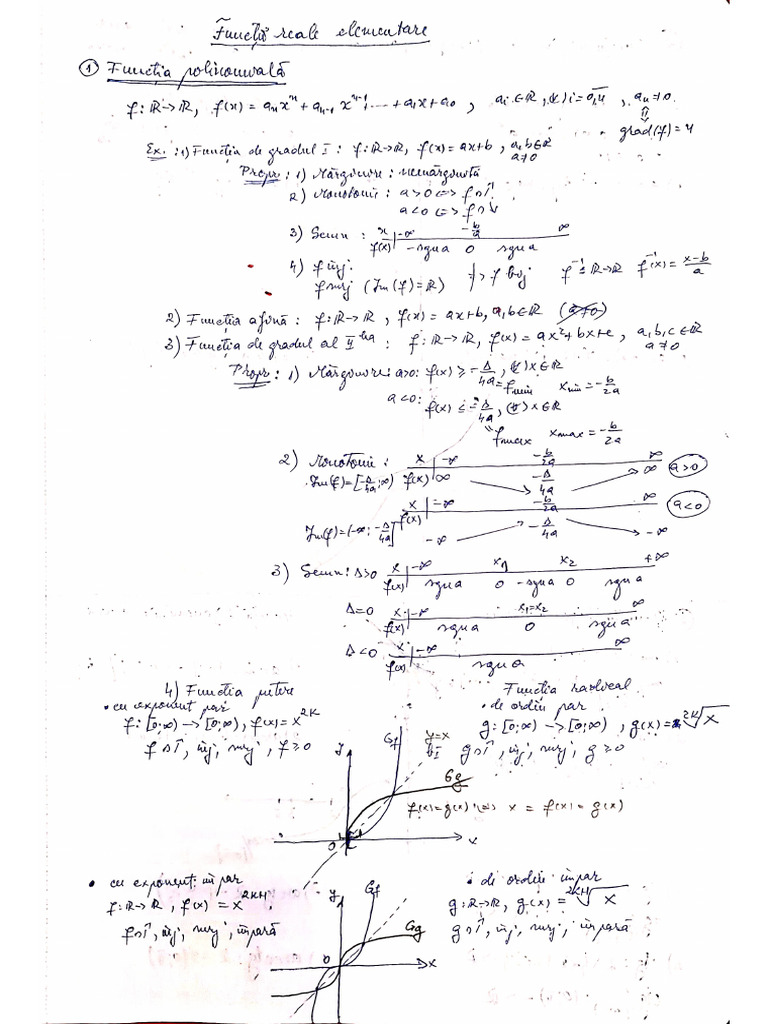 Funcții reale elementare
① Funcția polinomială
f: ℝ→ℝ, f(x) = aₙxⁿ + aₙ₋₁xⁿ⁻¹ + ... + a₁x + a₀, aᵢ ∈ ℝ, (∀) i = 0,n, aₙ ≠ 0
⇕
grad(f) = n
Ex.: 1) Funcția de gradul I: f: ℝ→ℝ, f(x) = ax+b, a,b∈ℝ
a≠0
Propr: 1) Mărginire: nemărginită
2) Monotonie: a>0 <=> f s↑
a<0 <=> f s↓
3) Semn: x | -∞ -b/a ∞
f(x) | -sgn a 0 sgn a
4) f inj.
f surj (Im(f)=ℝ) => f bij f⁻¹: ℝ→ℝ f⁻¹(x) = x-b/a
2) Funcția afină: f: ℝ→ℝ, f(x) = ax+b, a,b∈ℝ (a≠0)
3) Funcția de gradul al II-lea: f: ℝ→ℝ, f(x) = ax²+bx+c, a,b,c∈ℝ
a≠0
Propr: 1) Mărginire: a>0: f(x) ≥ -Δ/4a, (∀) x∈ℝ
= fmin xmin = -b/2a
a<0: f(x) ≤ -Δ/4a, (∀) x∈ℝ
= fmax xmax = -b/2a
2) Monotonie: x | -∞ -b/2a ∞
Im(f) = [-Δ/4a; ∞) f(x) | ∞ → -Δ/4a → ∞ a>0
x | -∞ -b/2a ∞ a<0
Im(f) = (-∞; -Δ/4a] f(x) | -∞ → -Δ/4a → -∞
3) Semn: Δ>0 x | -∞ x₁ x₂ +∞
f(x) | sgn a 0 -sgn a 0 sgn a
Δ=0 x | -∞ x₁=x₂ ∞
f(x) | sgn a 0 sgn a
Δ<0 x | -∞ ∞
f(x) | sgn a
4) Funcția putere
• cu exponent par
f: [0;∞) → [0;∞), f(x) = x²ᴷ
f s↑, inj, surj, f≥0
Funcția radical
• de ordin par
g: [0;∞) → [0;∞), g(x) = ²ᴷ√x
g s↑, inj, surj, g≥0
y Gf y=x
bI
Gg
f(x)=g(x) <=> x = f(x) = g(x)
O x
• cu exponent impar
f: ℝ→ℝ, f(x) = x²ᴷ⁺¹
f s↑, inj, surj, impară
• de ordin impar
g: ℝ→ℝ, g(x) = ²ᴷ⁺¹√x
g s↑, inj, surj, impară
y Gf
Gg
O x